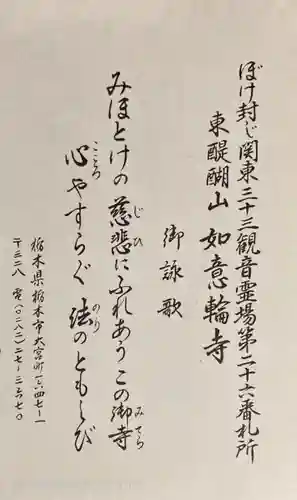 ぼけ封じ関東三十三観音霊場第二十六番札所
東醍醐山 如意輪寺
御詠歌
みほとけの 慈悲にふれあう この御寺
じひ
みてら
心やすらぐ 法のともしび
こころ
のり
栃木県栃木市大宮町一六四七-一
〒三二八 電(〇二八二)二七-三六七〇